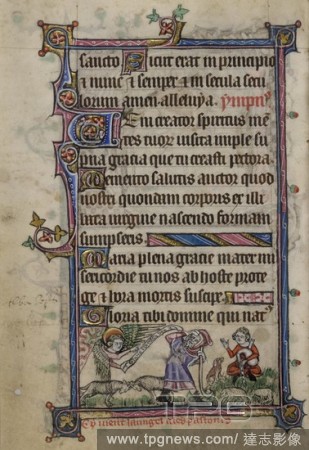 sancto Sicut erat in principio
⁊ nunc ⁊ semper ⁊ in secula secu
lorum amen alleluya. ympn
Veni creator spiritus me
tes tuor visita imple su
pna gracia que tu creasti pectora.
Memento salutis auctor quod
nostri quondam corporis ex illi
bata virgine nascendo formam
sumpseris.
Maria plena gracie mater mi
sericordie tu nos ab hoste prote
ge ⁊ hora mortis suscipe.
Gloria tibi domine qui nat
TPG
www.tpgnews.com/ 達志影像